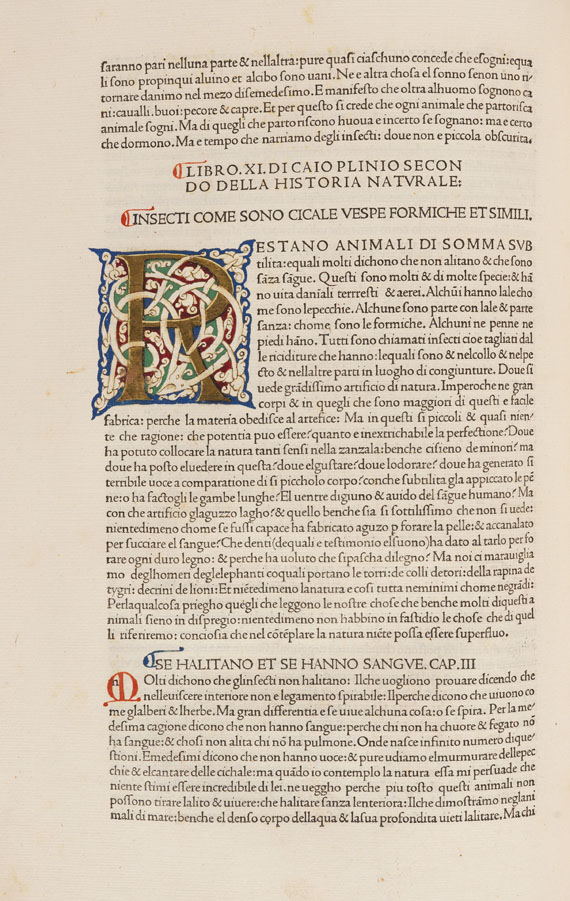 saranno pari nelluna parte & nellaltra:pure quasi ciaschuno concede che esogni:equa
li sono propinqui aluino et alcibo sono uani. Ne e altra chosa el sonno senon uno ri
tornare danimo nel mezo disemedesimo. E manifesto che oltra alhuomo sognono ca
ni:caualli.buoi:pecore & capre. Et per questo si crede che ogni animale che partorisca
animale sogni. Ma di quegli che partoriscono huoua e incerto se sognano: ma e certo
che dormono. Ma e tempo che narriamo degli insecti: doue non e piccola obscurita.
LIBRO.XI.DI CAIO PLINIO SECON
DO DELLA HISTORIA NATVRALE:
INSECTI COME SONO CICALE VESPE FORMICHE ET SIMILI.
RESTANO ANIMALI DI SOMMA SVB
tilita:equali molti dichono che non alitano & che sono
sāza sāgue. Questi sono molti & di molte specie:& hā
no uita daniāli terrresti & aerei. Alchūi hanno lale cho
me sono lepecchie. Alchune sono parte con lale & parte
sanza: chome sono le formiche. Alchuni ne penne ne
piedi hāno. Tutti sono chiamati insecti cioe tagliati dal
le riciditure che hanno:lequali sono & nelcollo & nelpe
cto & nellaltre parti in luogho di congiunture. Doue si
uede grādissimo artificio di natura. Imperoche ne gran
corpi & in quegli che sono maggiori di questi e facile
fabrica: perche la materia obedisce al artefice: Ma in questi si piccoli & quasi nien-
te che ragione: che potentia puo essere?quanto e inextrichabile la perfectione?Doue
ha potuto collocare la natura tanti sensi nella zanzala:benche cisieno de minori? ma
doue ha posto eluedere in questa?doue elgustare?doue lodorare? doue ha generato si
terribile uoce a comparatione di si picholo corpo?conche subtilita gla appiccato le pē
ne:o ha factogli le gambe lunghe?El uentre digiuno & auido del sāgue humano? Ma
con che artificio glaguzzo lagho?& quello benche sia si sottilissimo che non si uede:
nientedimeno chome se fussi capace ha fabricato aguzo p forare la pelle:& accanalato
per succiare el sangue?Che denti(dequali e testimonio elsuono)ha dato al tarlo per fo
rare ogni duro legno: & perche ha uoluto che sipascha dilegno? Ma noi ci marauiglia
mo deglhomeri deglelephanti coquali portano le torri:de colli detori:della rapina de
tygri: decrini de lioni: Et niētedimeno lanatura e cosi tutta neminimi chome negrādi:
Perlaqualcosa priegho quegli che leggono le nostre chose che benche molti diquesti a
nimali sieno in dispregio:nientedimeno non habbino in fastidio le chose che di quel
li riferiremo: conciosia che nel cōtēplare la natura niēte possa essere superfluo.
SE HALITANO ET SE HANNO SANGVE. CAP.III
MOlti dichono che glinsecti non halitano: Ilche uogliono prouare dicendo che
nelleuiscere interiore non e legamento spirabile: Ilperche dicono che uiuono co
me glalberi & lherbe. Ma gran differentia e se uiue alchuna cosa:o se spira. Per la me
desima cagione dicono che non hanno sangue:perche chi non ha chuore & fegato nō
ha sangue:& chosi non alita chi nō ha pulmone. Onde nasce infinito numero dique
stioni. Emedesimi dicono che non hanno uoce:& pure udiamo elmurmurare dellepec
chie & elcantare delle cichale:ma quādo io contemplo la natura essa mi persuade che
niente stimi essere incredibile di lei.ne ueggho perche piu tosto questi animali non
possono tirare lalito & uiuere:che halitare sanza lenteriora:Ilche dimostrāmo neglani
mali di mare:benche el denso corpo dellaqua & lasua profondita uieti lalitare. Ma chi